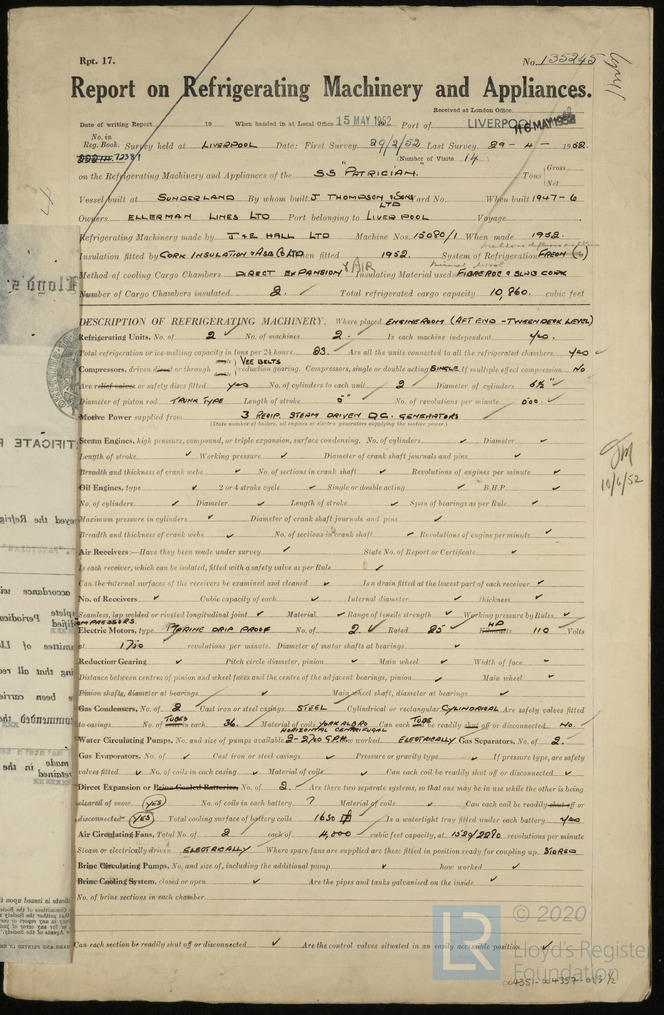 Rpt. 17.
No. 135245
Report on Refrigerating Machinery and Appliances.
Received at London Office
Date of writing Report 19 When handed in at Local Office 15 MAY 1952 Port of LIVERPOOL 16 MAY 1952
No. in Reg. Book. Survey held at LIVERPOOL Date: First Survey 29/2/52 Last Survey 29 - 4 - 1952.
72381 (Number of Visits 14)
on the Refrigerating Machinery and Appliances of the SS "PATRICIAN." Tons Gross Net
Vessel built at SUNDERLAND By whom built J THOMPSON & SONS LTD Yard No. When built 1947-6
Owners ELLERMAN LINES LTD Port belonging to LIVERPOOL Voyage
Refrigerating Machinery made by J & E HALL LTD Machine Nos. 15080/1 When made 1952.
Insulation fitted by CORK INSULATION & ASB Co LTD When fitted 1952. System of Refrigeration FREON
Method of cooling Cargo Chambers DIRECT EXPANSION & AIR Insulating Material used FIBREROC & SLAB CORK
Number of Cargo Chambers insulated 2. Total refrigerated cargo capacity 10,860. cubic feet
DESCRIPTION OF REFRIGERATING MACHINERY. Where placed ENGINE ROOM (AFT END - TWEEN DECK LEVEL)
Refrigerating Units, No. of 2 No. of machines 2. Is each machine independent YES.
Total refrigeration or ice-melting capacity in tons per 24 hours 23. Are all the units connected to all the refrigerated chambers YES
Compressors, driven direct or through VEE BELTS reduction gearing. Compressors, single or double acting SINGLE If multiple effect compression NO
Are relief valves or safety discs fitted YES No. of cylinders to each unit 2 Diameter of cylinders
Diameter of piston rod TRUNK TYPE Length of stroke No. of revolutions per minute
Motive Power supplied from 3 RECIP. STEAM DRIVEN D.C. GENERATORS
(State number of boilers, oil engines or electric generators supplying the motive power.)
Steam Engines, high pressure, compound, or triple expansion, surface condensing. No. of cylinders Diameter
Length of stroke Working pressure Diameter of crank shaft journals and pins
Breadth and thickness of crank webs No. of sections in crank shaft Revolutions of engines per minute
Oil Engines, type 2 or 4 stroke cycle Single or double acting B.H.P.
No. of cylinders Diameter Length of stroke Span of bearings as per Rule
Maximum pressure in cylinders Diameter of crank shaft journals and pins
Breadth and thickness of crank webs No. of sections in crank shaft Revolutions of engine per minute
Air Receivers:—Have they been made under survey State No. of Report or Certificate
Is each receiver, which can be isolated, fitted with a safety valve as per Rule
Can the internal surfaces of the receivers be examined and cleaned Is a drain fitted at the lowest part of each receiver
No. of Receivers Cubic capacity of each Internal diameter thickness
Seamless, lap welded or riveted longitudinal joint Material Range of tensile strength Working pressure by Rules
COMPRESSORS.
Electric Motors, type MARINE DRIP PROOF No. of 2. Rated 25 HP 110 Volts
at 1750 revolutions per minute. Diameter of motor shafts at bearings
Reduction Gearing Pitch circle diameter, pinion Main wheel Width of face
Distance between centres of pinion and wheel faces and the centre of the adjacent bearings, pinion Main wheel
Pinion shafts, diameter at bearings Main wheel shaft, diameter at bearings
Gas Condensers, No. of 2 Cast iron or steel casings STEEL Cylindrical or rectangular CYLINDRICAL Are safety valves fitted
to casings No. of TUBES in each 36. Material of coils YORKALBRO Can each TUBE be readily shut off or disconnected NO.
Water Circulating Pumps, No. and size of pumps available HORIZONTAL CENTRIFUGAL 2-270 GPM how worked ELECTRICALLY Gas Separators, No. of 2.
Gas Evaporators, No. of Cast iron or steel casings Pressure or gravity type If pressure type, are safety
valves fitted No. of coils in each casing Material of coils Can each coil be readily shut off or disconnected
Direct Expansion or Brine Cooled Batteries, No. of 2. Are there two separate systems, so that one may be in use while the other is being
cleared of snow YES No. of coils in each battery ? Material of coils Can each coil be readily shut off or
disconnected YES Total cooling surface of battery coils 1650 Is a watertight tray fitted under each battery YES
Air Circulating Fans, Total No. of 2 each of 4,000 cubic feet capacity, at revolutions per minute
Steam or electrically driven ELECTRICALLY Where spare fans are supplied are these fitted in position ready for coupling up STORED
Brine Circulating Pumps, No. and size of, including the additional pump how worked
Brine Cooling System, closed or open Are the pipes and tanks galvanised on the inside
No. of brine sections in each chamber
Can each section be readily shut off or disconnected Are the control valves situated in an easily accessible position
10/6/52
© 2020
LR
Lloyd's Register
Foundation